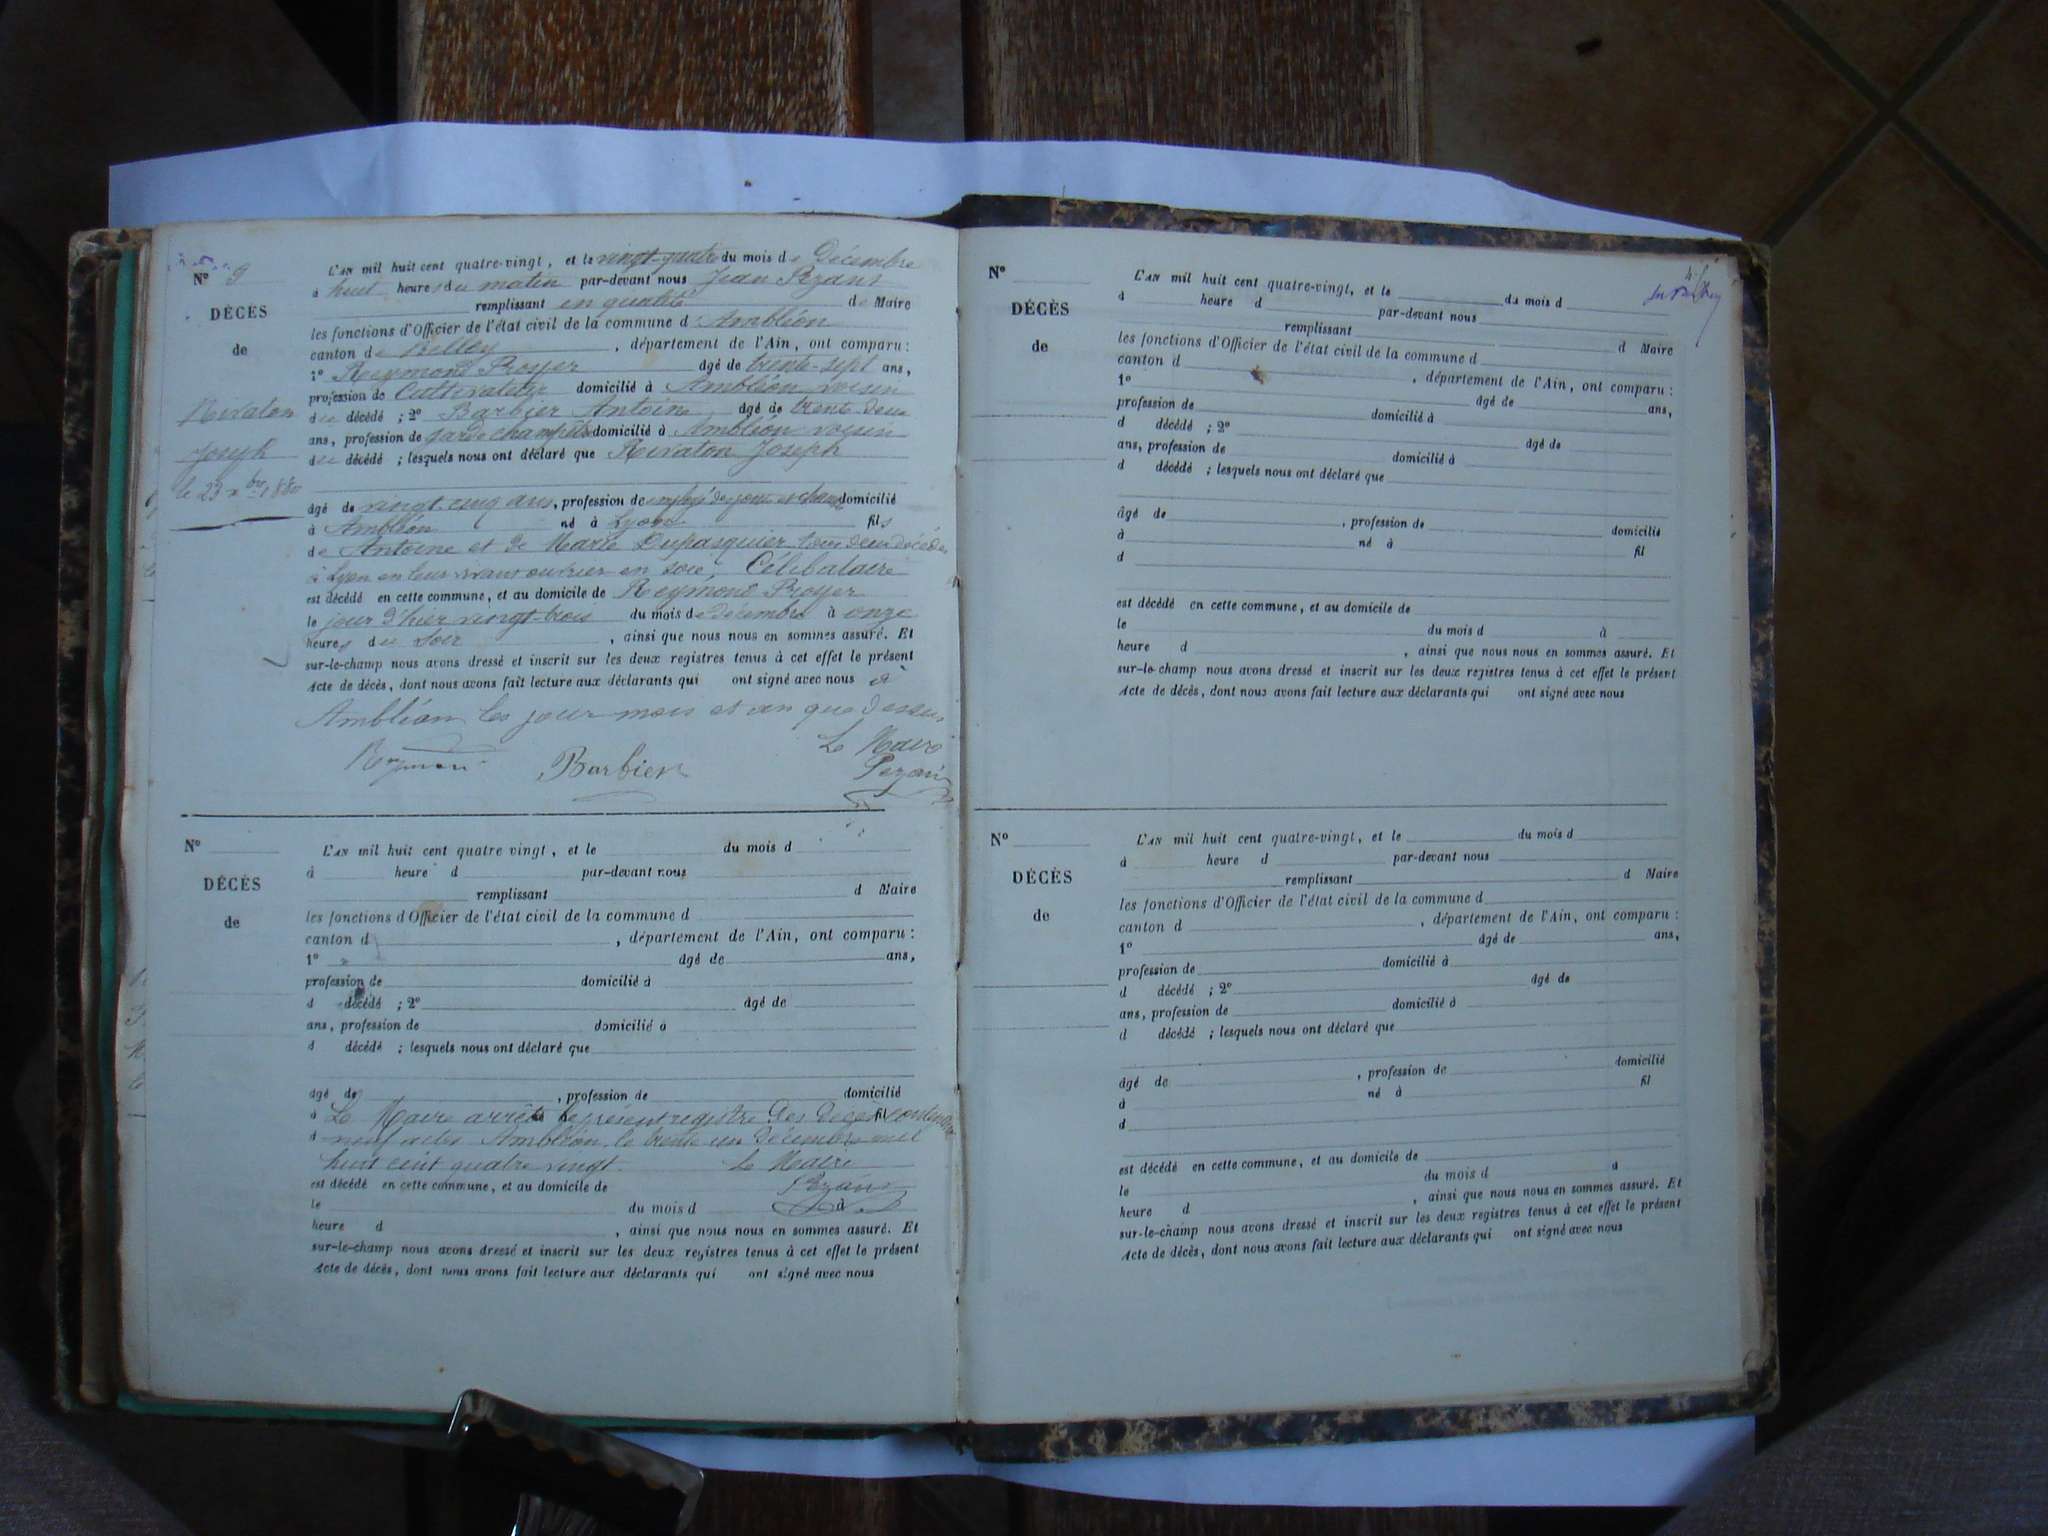 N° 9
DÉCÈS
de
Rivaton
Joseph
le 23 xbre 1880
L'AN mil huit cent quatre-vingt, et le vingt-quatre du mois de Décembre
à huit heures du matin par-devant nous Jean Pezant
remplissant en qualité de Maire
les fonctions d'Officier de l'état civil de la commune d'Ambléon
canton de Belley, département de l'Ain, ont comparu :
1° Reymond Proyer âgé de trente-sept ans,
profession de Cultivateur domicilié à Ambléon voisin
du décédé ; 2° Barbier Antoine âgé de trente deux
ans, profession de garde champêtre domicilié à Ambléon voisin
du décédé ; lesquels nous ont déclaré que Rivaton Joseph
âgé de vingt cinq ans, profession de employé de domicilié
à Ambléon né à Lyon fils
de Antoine et de Marie Dupasquier tous deux décédés
à Lyon en leur vivant ouvrier en soie Célibataire
est décédé en cette commune, et au domicile de Reymond Proyer
le jour d'hier vingt-trois du mois de décembre à onze
heures du soir, ainsi que nous nous en sommes assuré. Et
sur-le-champ nous avons dressé et inscrit sur les deux registres tenus à cet effet le présent
Acte de décès, dont nous avons fait lecture aux déclarants qui ont signé avec nous à
Ambléon les jour mois et an que dessus
Le Maire
Reymond Barbier Pezant
N°
DÉCÈS
de
L'AN mil huit cent quatre vingt, et le du mois d
à heure d par-devant nous
remplissant d Maire
les fonctions d'Officier de l'état civil de la commune d
canton d , département de l'Ain, ont comparu :
1° âgé de ans,
profession de domicilié à
d décédé ; 2° âgé de
ans, profession de domicilié à
d décédé ; lesquels nous ont déclaré que
âgé de , profession de domicilié
à Le Maire arrête le présent registre des décès fil contenant
d neuf actes Ambléon le trente un décembre mil
huit cent quatre vingt. Le Maire
est décédé en cette commune, et au domicile de Pezant
le du mois d à
heure d , ainsi que nous nous en sommes assuré. Et
sur-le-champ nous avons dressé et inscrit sur les deux registres tenus à cet effet le présent
Acte de décès, dont nous avons fait lecture aux déclarants qui ont signé avec nous
N°
DÉCÈS
de
L'AN mil huit cent quatre-vingt, et le du mois d
à heure d par-devant nous
remplissant d Maire
les fonctions d'Officier de l'état civil de la commune d
canton d , département de l'Ain, ont comparu :
1° âgé de ans,
profession de domicilié à
d décédé ; 2° âgé de
ans, profession de domicilié à
d décédé ; lesquels nous ont déclaré que
âgé de , profession de domicilié
à né à fil
d
est décédé en cette commune, et au domicile de
le du mois d à
heure d , ainsi que nous nous en sommes assuré. Et
sur-le-champ nous avons dressé et inscrit sur les deux registres tenus à cet effet le présent
Acte de décès, dont nous avons fait lecture aux déclarants qui ont signé avec nous
N°
DÉCÈS
de
L'AN mil huit cent quatre-vingt, et le du mois d
à heure d par-devant nous
remplissant d Maire
les fonctions d'Officier de l'état civil de la commune d
canton d , département de l'Ain, ont comparu :
1° âgé de ans,
profession de domicilié à
d décédé ; 2° âgé de
ans, profession de domicilié à
d décédé ; lesquels nous ont déclaré que
âgé de , profession de domicilié
à né à fil
d
est décédé en cette commune, et au domicile de
le du mois d à
heure d , ainsi que nous nous en sommes assuré. Et
sur-le-champ nous avons dressé et inscrit sur les deux registres tenus à cet effet le présent
Acte de décès, dont nous avons fait lecture aux déclarants qui ont signé avec nous